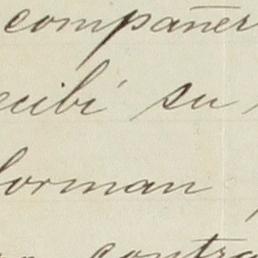 compañer
ecibí su
forman
contra